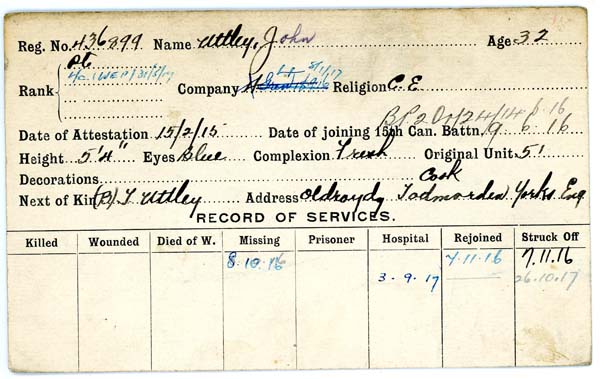 Reg. No. 436899 Name Uttley, John Age 32
Pte
Rank
Company Religion C. E.
Date of Attestation 15/2/15 Date of joining 15th Can. Battn. 9. 6. 16
Height 5'4" Eyes Blue Complexion Fresh Original Unit 51
Decorations Cook
Next of Kin (B) T Uttley Address Oldroyd, Todmorden Yorks Eng.
RECORD OF SERVICES.
Killed Wounded Died of W. Missing Prisoner Hospital Rejoined Struck Off
8.10.16 7.11.16 7.11.16
3.9.17 26.10.17